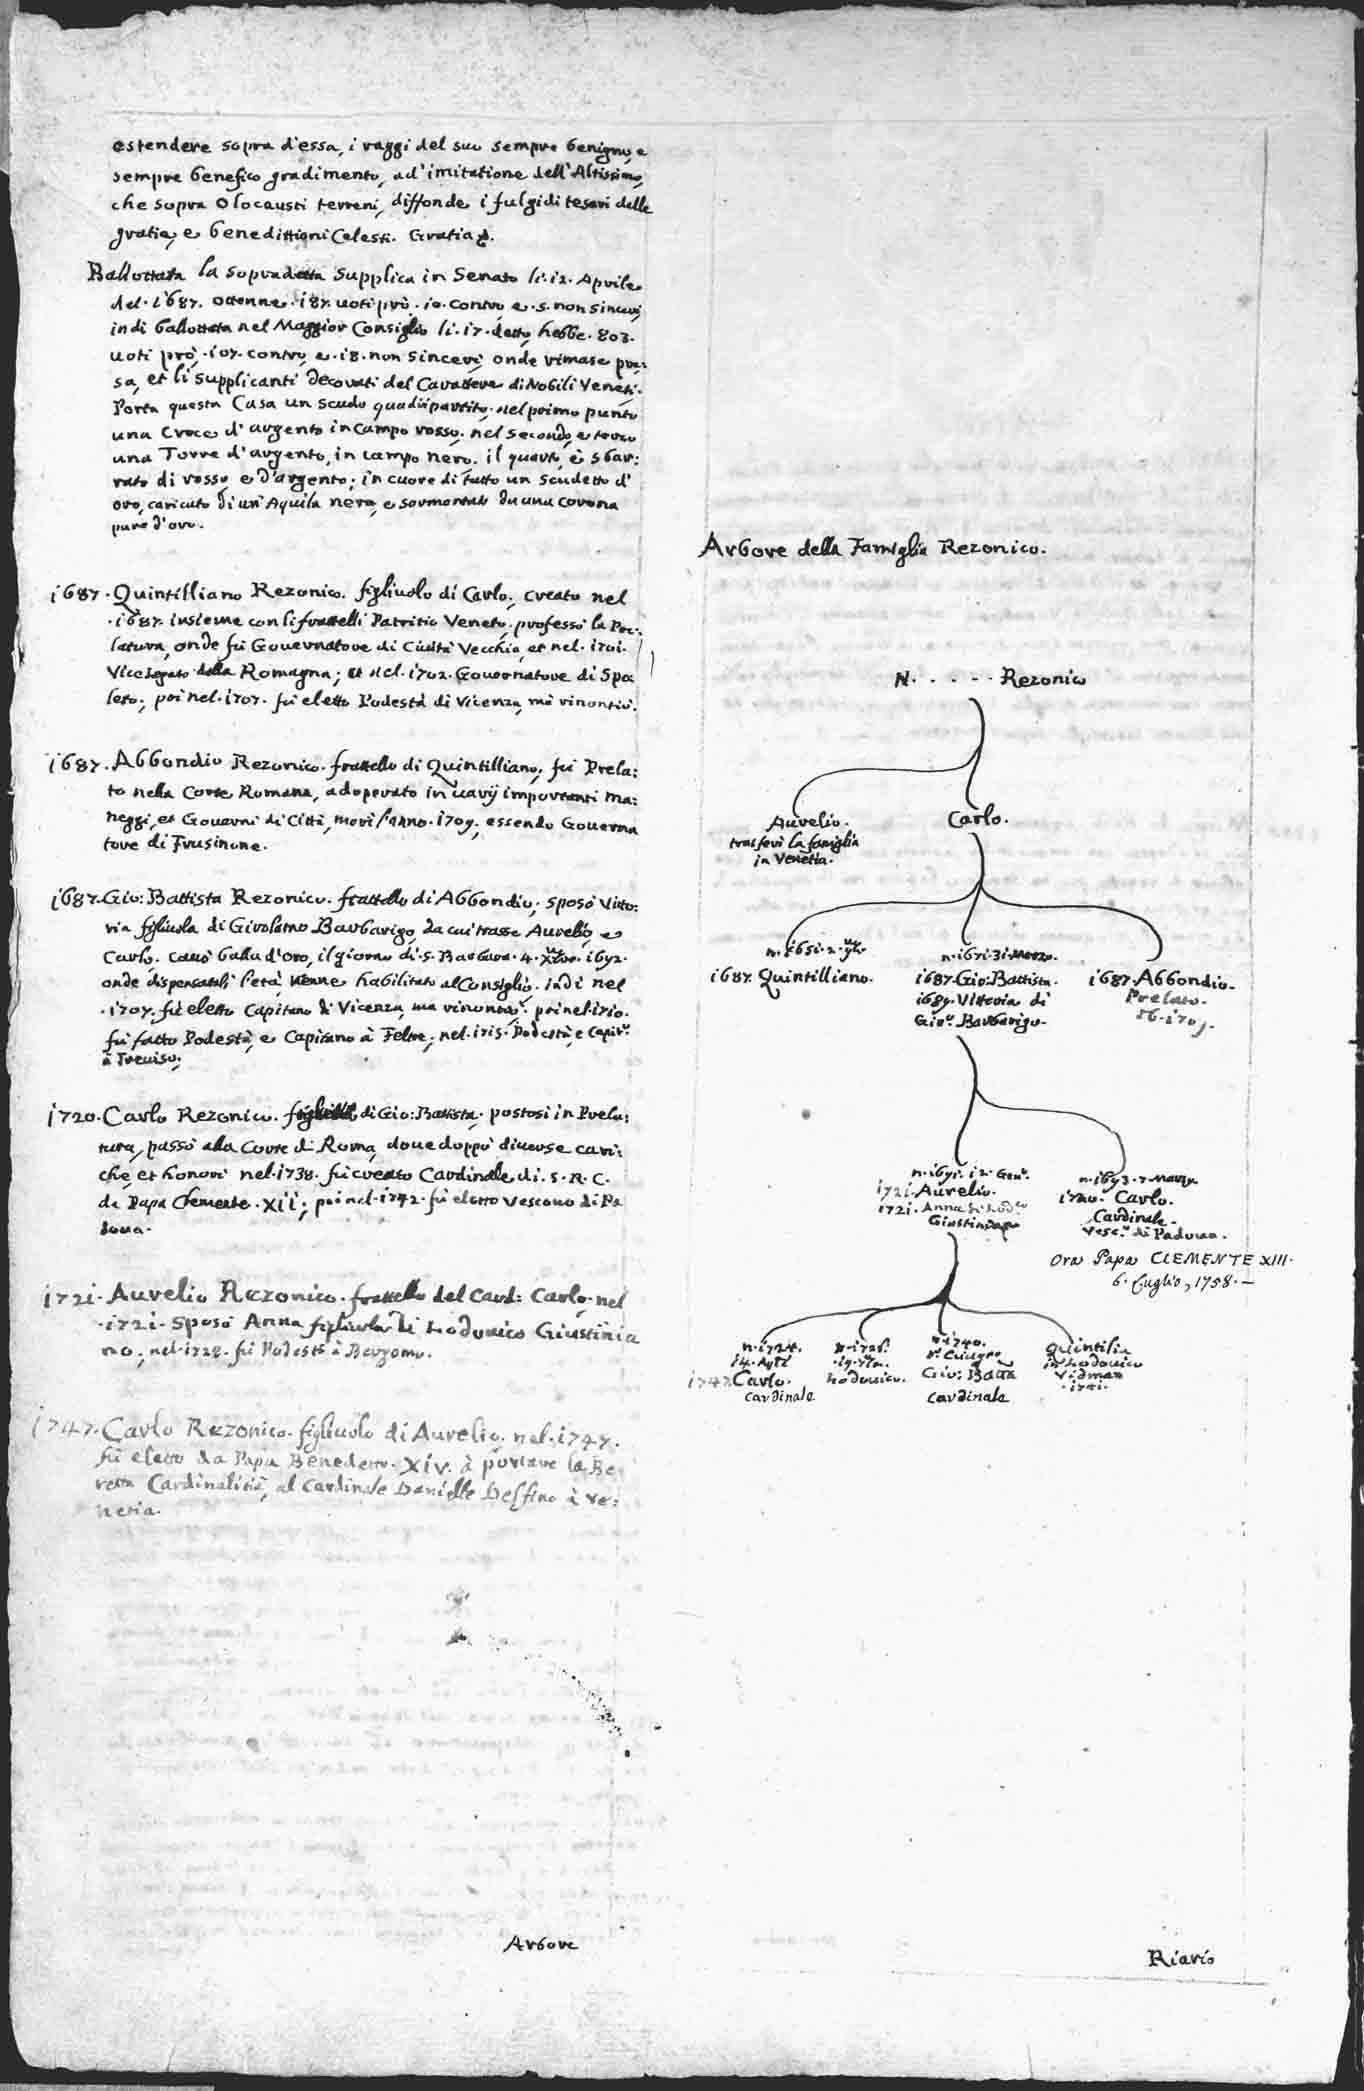 estendere sopra d'essa, i raggi del suo sempre benigno, e
sempre benefico gradimento, ad' imitatione dell'Altissimo,
che sopra Olocausti terreni, diffonde i fulgidi tesori delle
gratie, e benedittioni Celesti. Gratia &.
Ballottata la sopradetta supplica in Senato li. 12. Aprile
del. 1687. ottenne. 187. uoti prò. 10. contro e. 5. non sinceri,
indi ballottata nel Maggior Consiglio li. 17. detto, hebbe. 803.
uoti prò, 107. contro, e. 18. non sinceri, onde rimase pre:
sa, et li supplicanti decorati del Carattere di Nobili Veneti.
Porta questa Casa un scudo quadripartito, nel primo punto
una Croce d' argento in campo rosso; nel secondo, e terzo
una Torre d'argento, in campo nero. il quarto, è sbar:
rato di rosso, e d'argento; in cuore di tutto un scudetto d'
oro, caricato di un' Aquila nera, e sormontato da una corona
pure d'oro.
1687. Quintilliano Rezonico. figliuolo di Carlo, creato nel
.1687. insieme con li frattelli Patritio Veneto, professò la Pre:
latura, onde fù Gouernatore di Ciuità Vecchia, et nel. 1701.
Vicelegato della Romagna; et nel. 1702. Gouernatore di Spo
leto; poi nel. 1707. fù eletto Podestà di Vicenza, mà rinontiò.
1687. Abbondio Rezonico. frattello di Quintilliano, fù Prela:
to nella Corte Romana, adoperato in uarij importanti ma:
neggi, et Gouerni di Città, morì l'anno. 1709. essendo Gouerna
tore di Frusinone.
1687. Gio: Battista Rezonico. frattello di Abbondio; sposò Vitto:
ria figliuola di Girolamo Barbarigo, da cui trasse Aurelio, e
Carlo. cauò balla d'oro, il giorno di. S. Barbara. 4. Xbre. 1692.
onde dispensatali l'età, uenne habilitato al Consiglio. indi nel
.1707. fù eletto Capitano di Vicenza, ma rinontiò. poi nel. 1710.
fù fatto Podestà, e Capitano à Feltre; nel. 1715. Podestà, e Capit.
à Treuiso.
1720. Carlo Rezonico. di Gio: Battista. postosi in Prela:
tura, passò alla Corte di Roma, doue doppò diuerse cari:
che, et honori nel. 1738. fù creato Cardinale di. S. R. C.
da Papa Clemente. XII; poi nel. 1742. fù eletto Vescouo di Pa
doua.
1721. Aurelio Rezonico. frattello del Card: Carlo, nel
.1721. sposò Anna figliuola di Lodouico Giustinia
no, nel. 1728. fù Podestà à Bergomo.
1747. Carlo Rezonico. figliuolo di Aurelio. nel. 1747.
fù eletto da Papa Benedetto. XIV. à portare la Be
retta Cardinalitia, al Cardinale Danielle Delfino à Ve:
netia.
Arbore
Arbore della Famiglia Rezonico.
N. . . . . Rezonico
Aurelio.
trasferì la famiglia
in Venetia.
Carlo.
n. 1651. 2.
1687. Quintilliano.
n. 1671. 31. Marzo.
1687. Gio: Battista.
1689. Vittoria di
Gir.º Barbarigo.
1687. Abbondio.
Prelato.
1709.
n. 1691. 12. Gen.º
1721. Aurelio.
1721. Anna di Lod.co
Giustinian
n. 1693. 7. Marzo
1720. Carlo.
Cardinale.
Vesc.º di Padoua.
Ora Papa CLEMENTE XIII.
6. Luglio, 1758.
n. 1724.
14. Aple
1747. Carlo.
Cardinale
n. 1726.
Lodouico.
n. 1740.
Giugno
Gio: Batta
Cardinale
Quintilia
in Lodouico
Vidman
.1741.
Riario